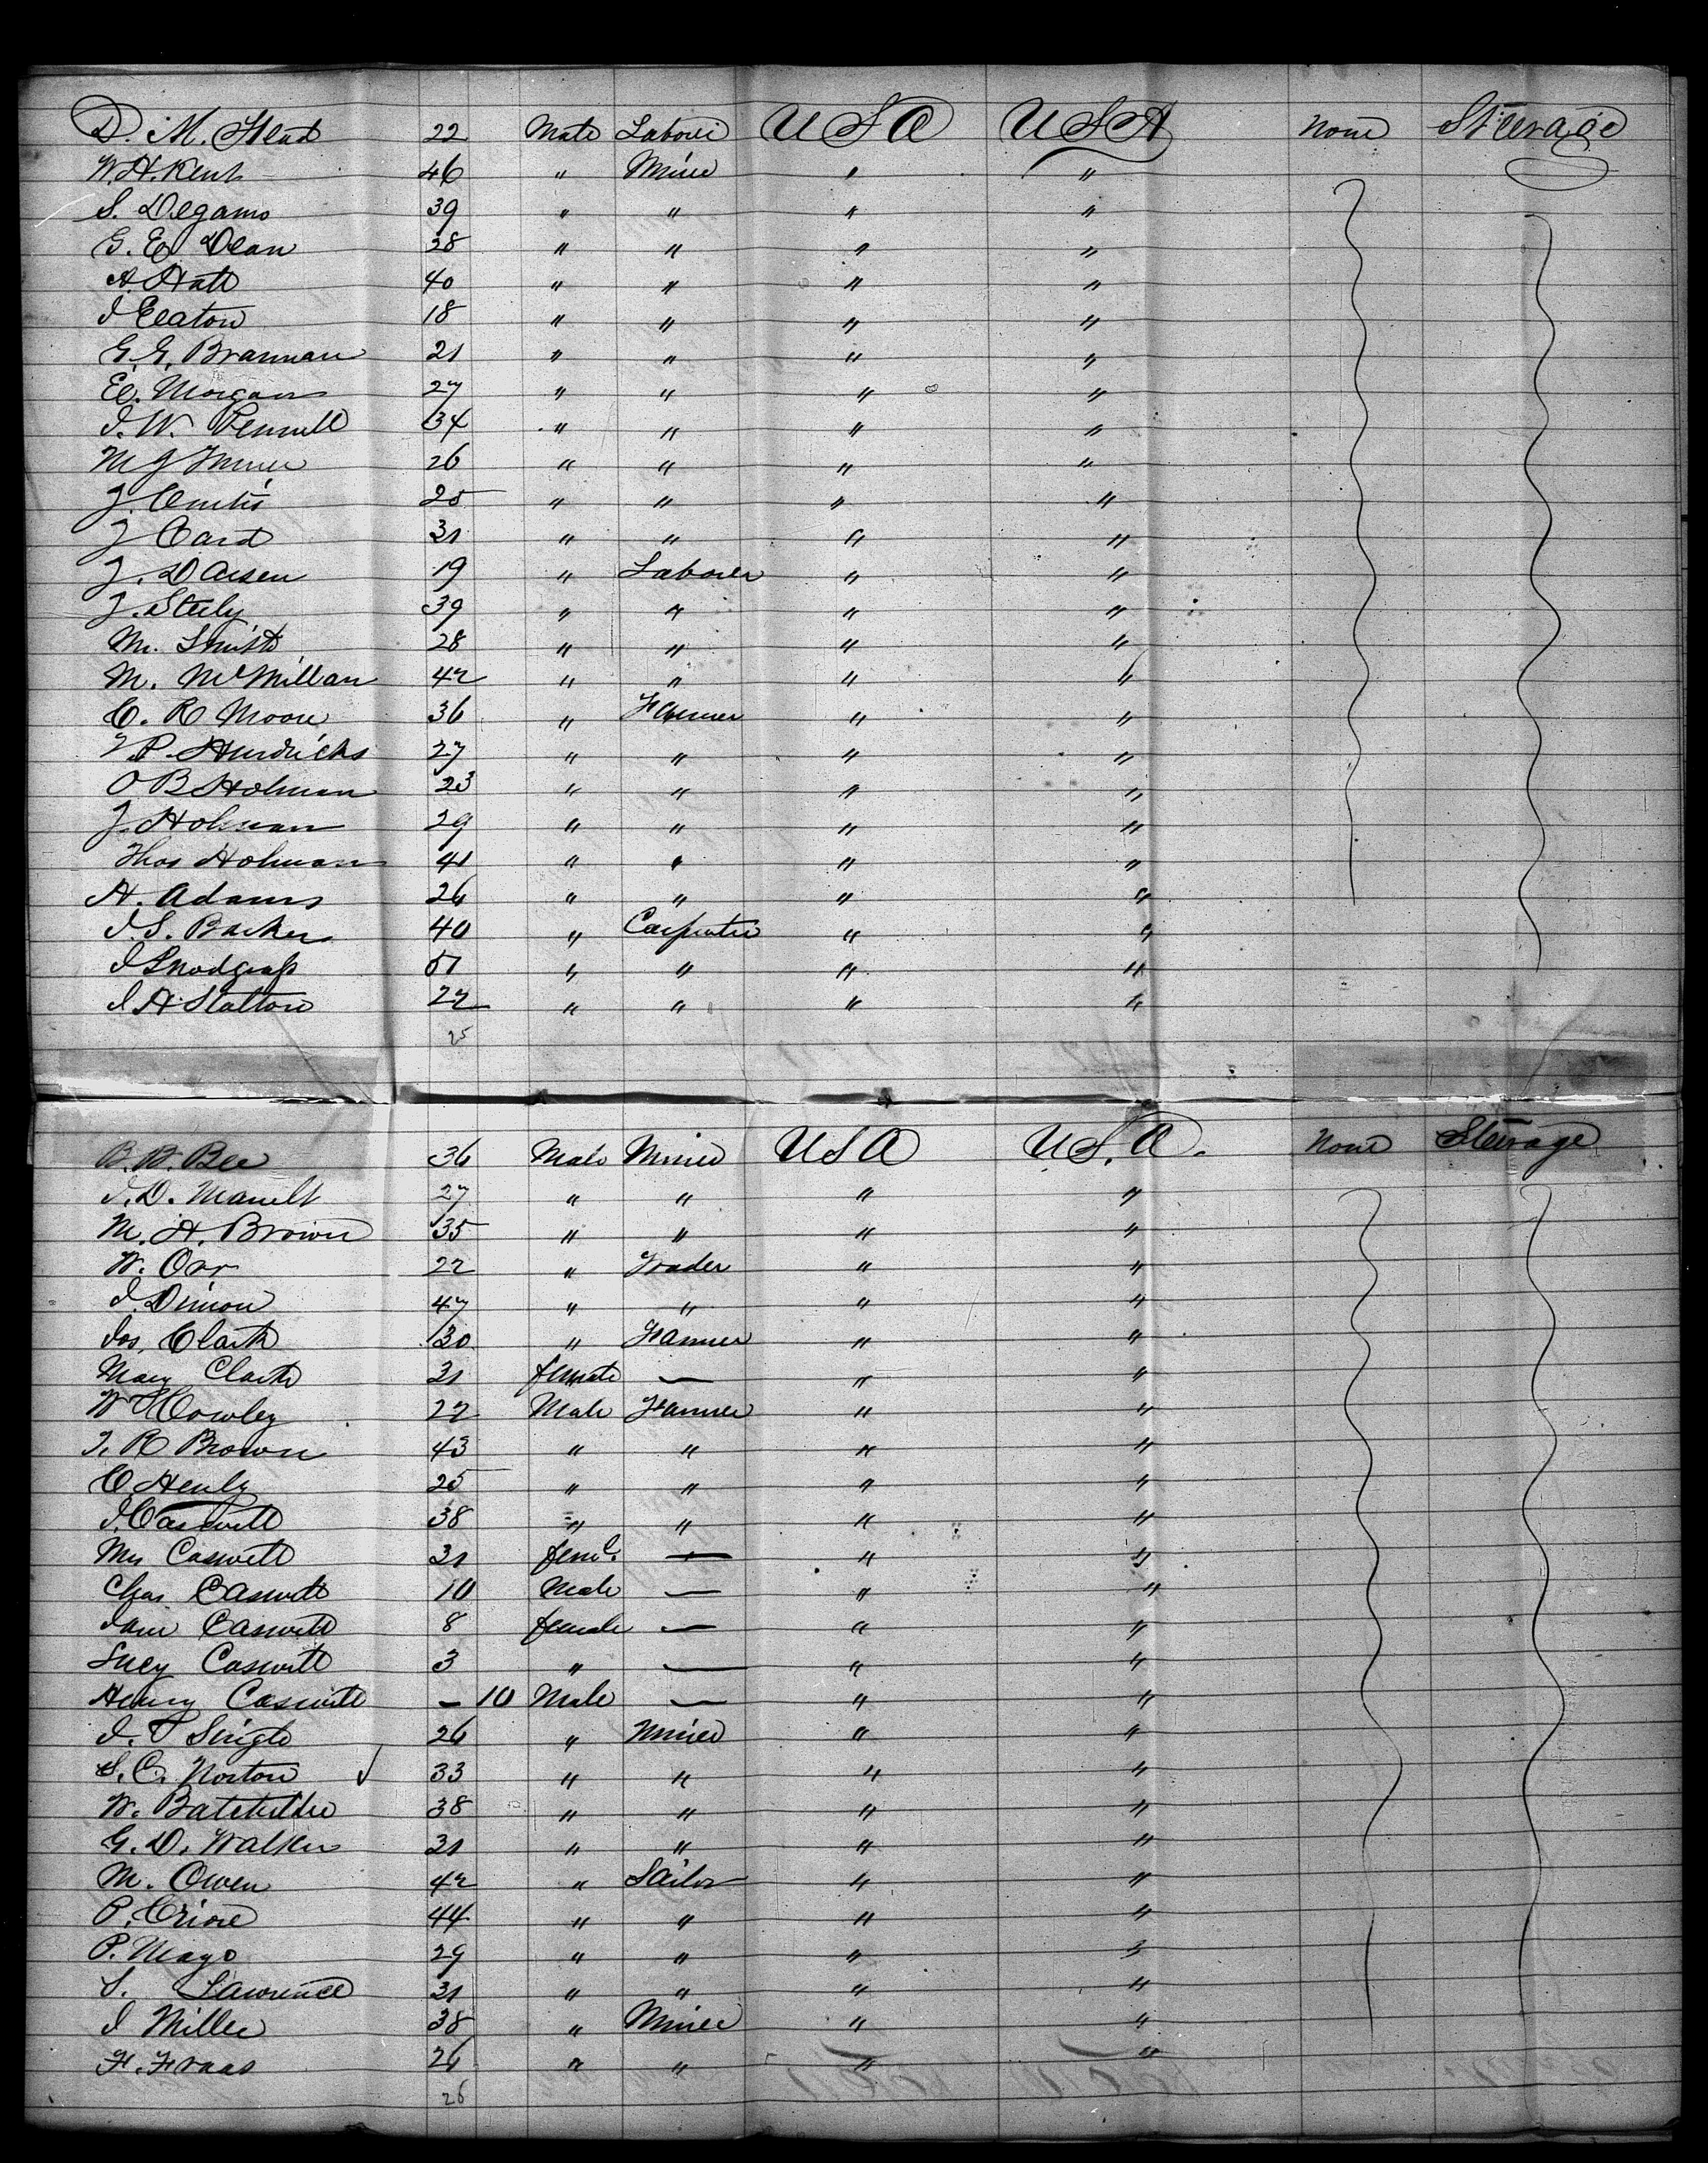 D. M. Head 22 Male Laborer USA USA None Steerage
W. H. Kent 46 " Miner " "
S. Degamo 39 " " " "
G. E. Dean 28 " " " "
A. Hall 40 " " " "
I Eeaton 18 " " " "
G. G. Brannan 21 " " " "
E. Morgan 27 " " " "
I. W. Pennell 34 " " " "
M J 26 " " " "
J. Curtis 25 " " " "
J Card 31 " " " "
J. D 19 " Laborer " "
J. Steely 39 " " " "
M. Smith 28 " " " "
M. McMillan 42 " " " "
C. R Moore 36 " Farmer " "
T. P. Hendricks 27 " " " "
O B Holman 23 " " " "
J. Holman 29 " " " "
Thos Holman 41 " " " "
A. Adams 26 " " " "
I. S. Barker 40 " Carpenter " "
I Snodgrass 51 " " " "
I A Statton 22 " " " "
25
B. B. Bee 36 Male Miner USA U.S.A. None Steerage
I. D. 27 " " " "
M. A. Brown 35 " " " "
W. Orr 22 " Trader " "
I. Dimon 47 " " " "
Jos. Clark 30 " Farmer " "
Mary Clark 31 female — " "
W Howley 22 Male Farmer " "
T. R Brown 43 " " " "
C. Henly 25 " " " "
I. Caswell 38 " " " "
Mrs Caswell 31 feml. — " "
Chas. Caswell 10 Male — " "
Jane Caswell 8 female — " "
Lucy Caswell 3 " — " "
Henry Caswell – 10 Male — " "
I. T Single 26 " Miner " "
S. C. Norton 33 " " " "
W. Batchelder 38 " " " "
G. D. Walker 31 " " " "
M. Owen 42 " Sailor " "
P. 44 " " " "
P. Mayo 29 " " " "
S. Lawrence 31 " " " "
I Miller 38 " Miner " "
F. Fraas 26 " " " "
26